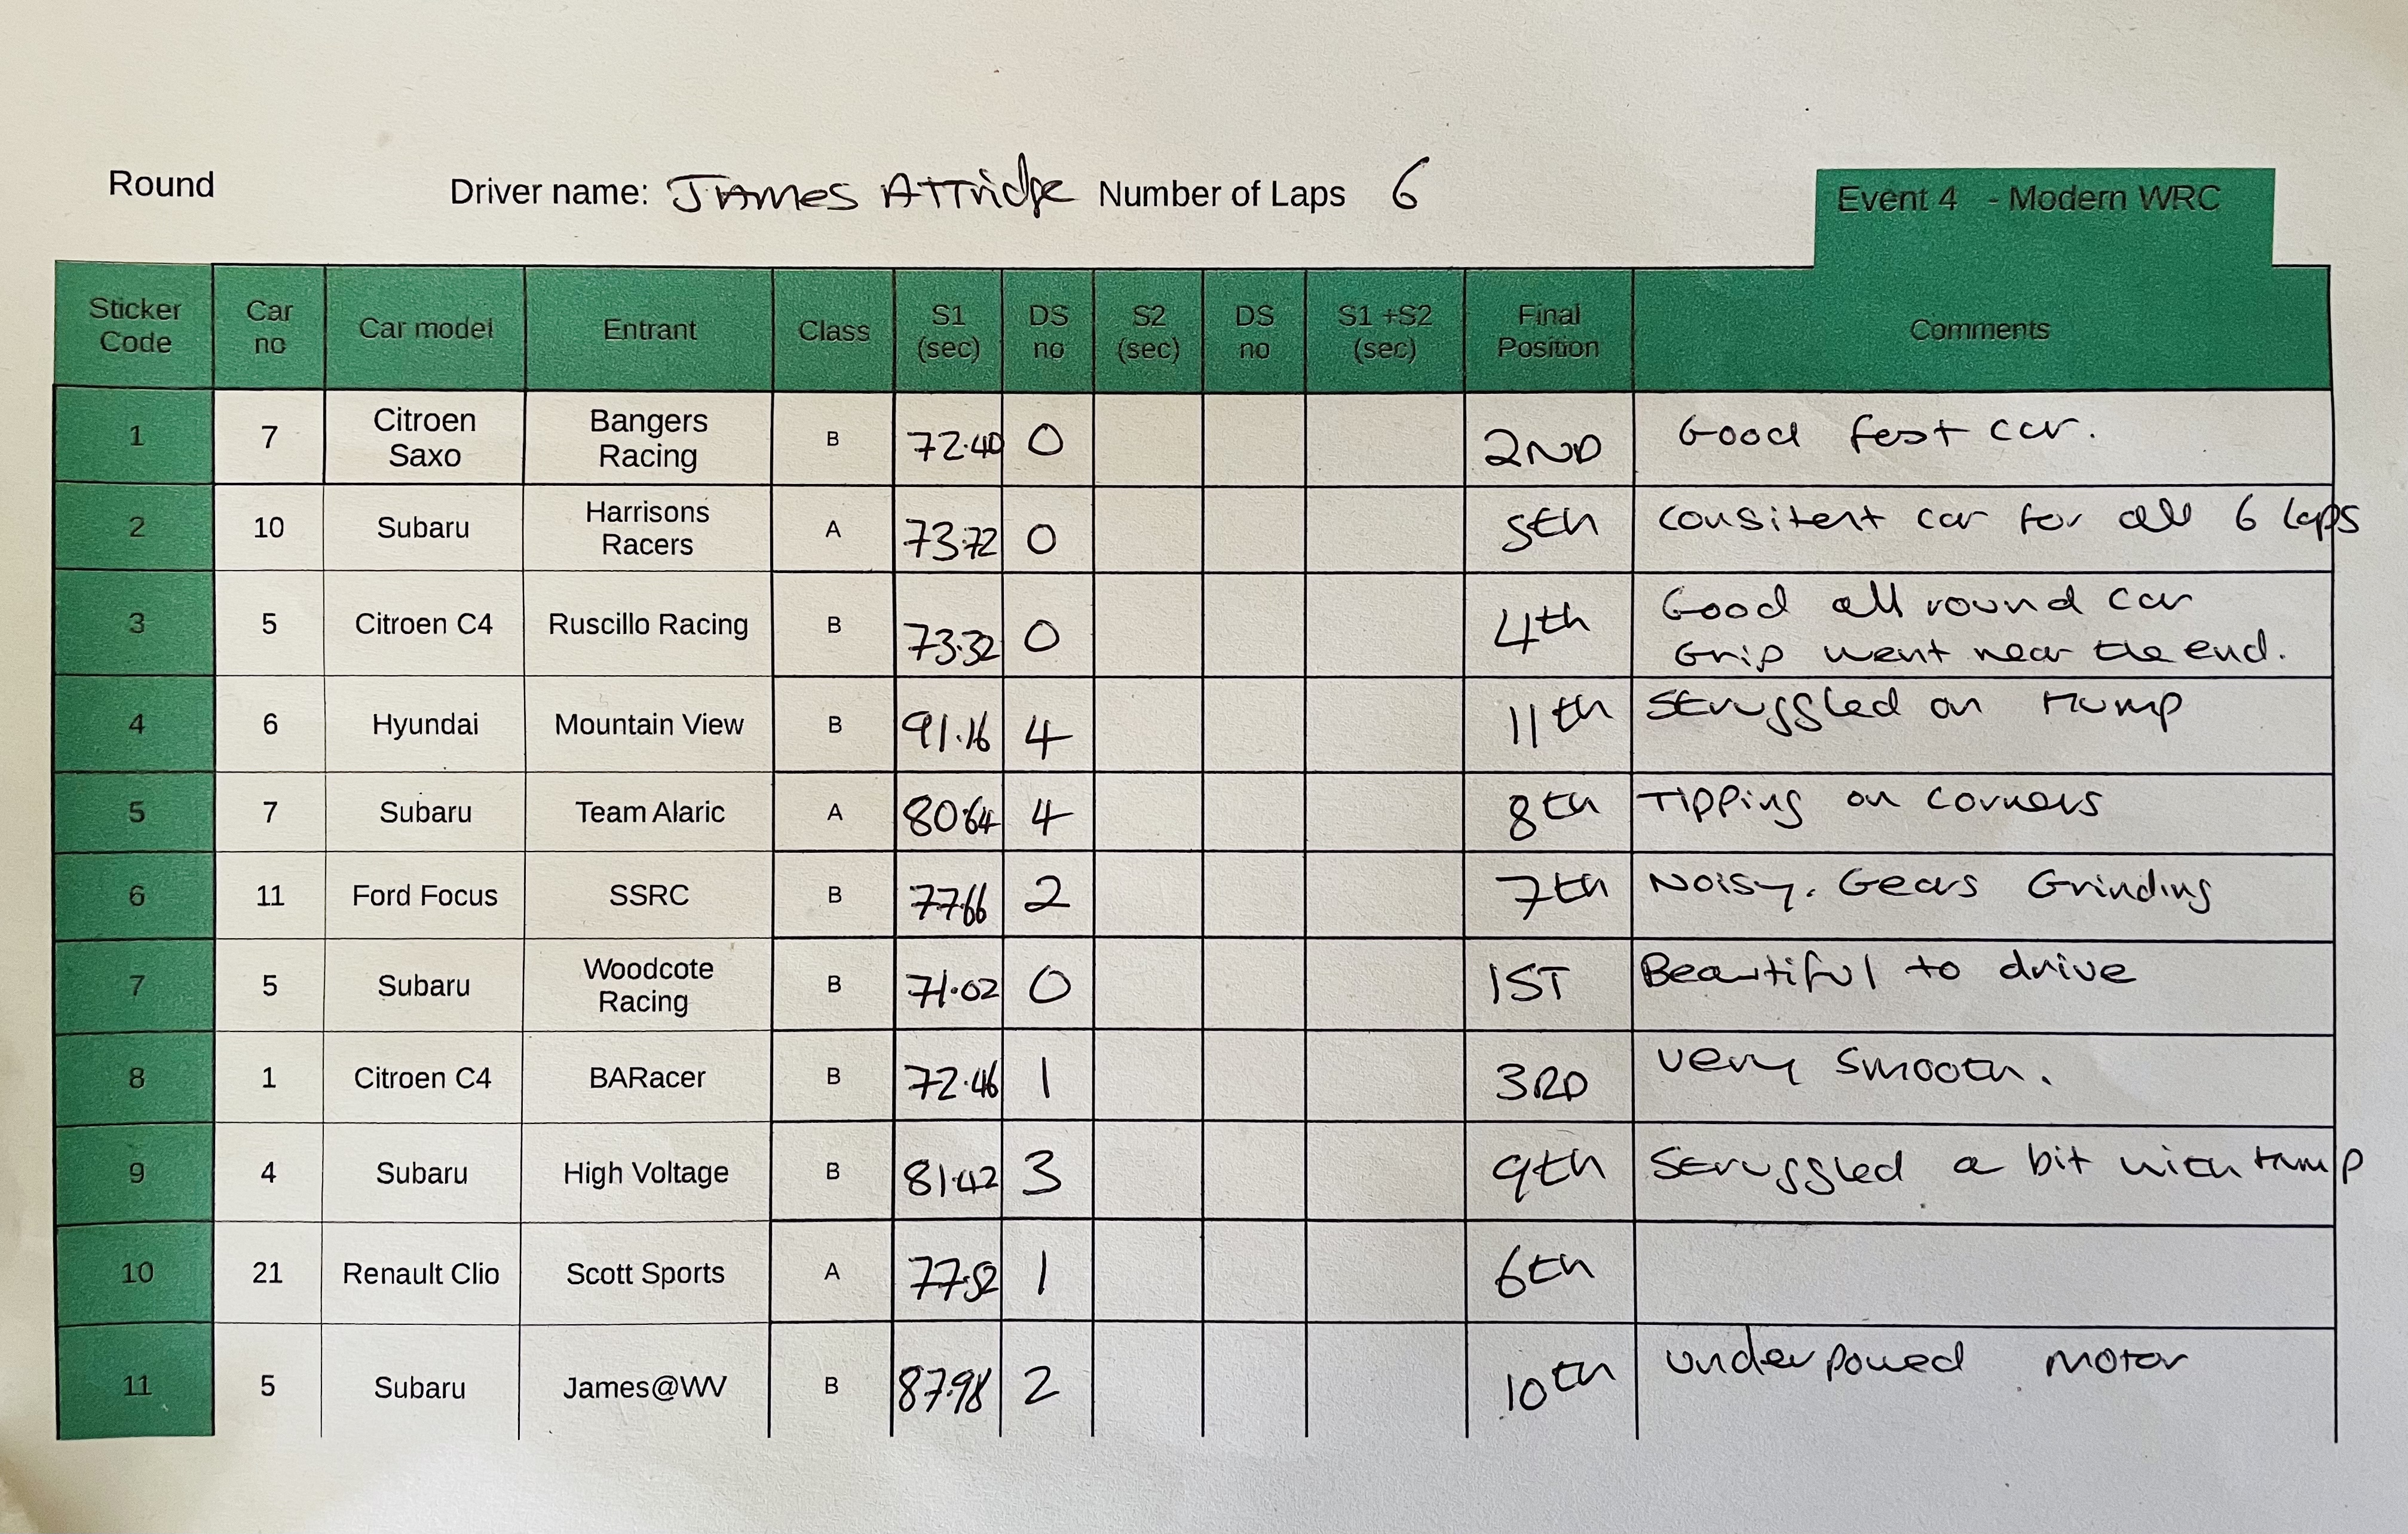 Round Driver name: James Attridge Number of Laps 6
Event 4 - Modern WRC
Sticker Code Car no Car model Entrant Class S1 (sec) DS no S2 (sec) DS no S1 +S2 (sec) Final Position Comments
1 7 Citroen Saxo Bangers Racing B 72.40 0 2ND Good fast car.
2 10 Subaru Harrisons Racers A 73.72 0 5th Consitent car for all 6 laps
3 5 Citroen C4 Ruscillo Racing B 73.32 0 4th Good all round car
Grip went near the end.
4 6 Hyundai Mountain View B 91.16 4 11th Struggled on Hump
5 7 Subaru Team Alaric A 80.64 4 8th Tipping on corners
6 11 Ford Focus SSRC B 77.66 2 7th Noisy. Gears Grinding
7 5 Subaru Woodcote Racing B 71.02 0 1ST Beautiful to drive
8 1 Citroen C4 BARacer B 72.46 1 3RD Very smooth.
9 4 Subaru High Voltage B 81.42 3 9th Struggled a bit with hump
10 21 Renault Clio Scott Sports A 77.52 1 6th
11 5 Subaru James@WV B 87.98 2 10th underpowed motor